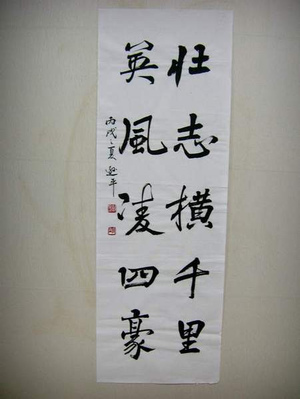 壮志横千里
英風凌四豪
丙戌之夏
平